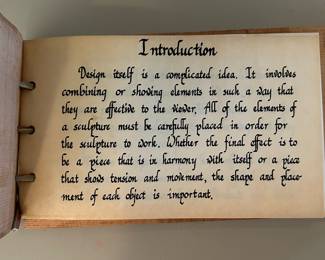 Introduction
Design itself is a complicated idea. It involves
combining or showing elements in such a way that
they are effective to the viewer. All of the elements of
a sculpture must be carefully placed in order for
the sculpture to work. Whether the final effect is to
be a piece that is in harmony with itself or a piece
that shows tension and movement, the shape and place-
ment of each object is important.